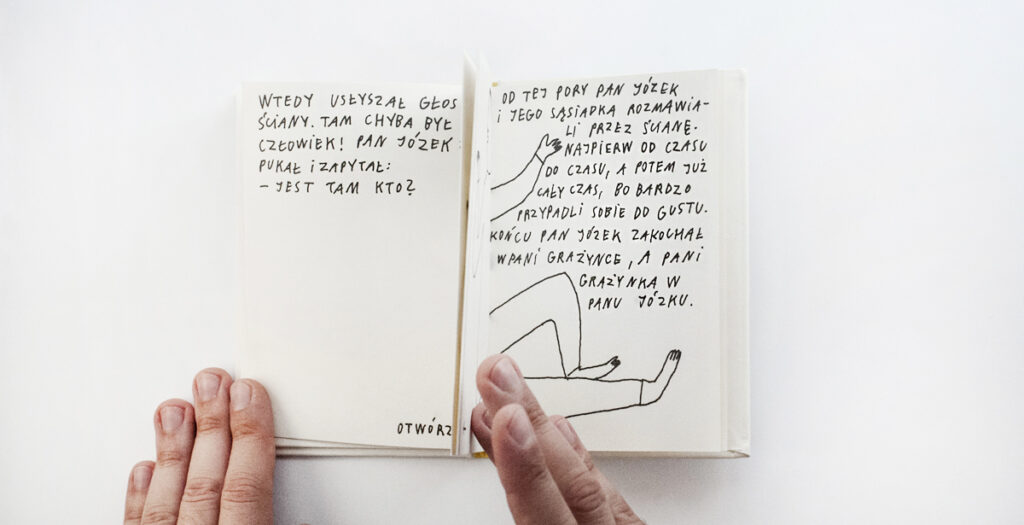 WTEDY USŁYSZAŁ GŁOS
ŚCIANY. TAM CHYBA BYŁ
CZŁOWIEK! PAN JÓZEK
PUKAŁ I ZAPYTAŁ:
– JEST TAM KTO?
OTWÓRZ
OD TEJ PORY PAN JÓZEK
I JEGO SĄSIADKA ROZMAWIA-
LI PRZEZ ŚCIANĘ.
NAJPIERW OD CZASU
DO CZASU, A POTEM JUŻ
CAŁY CZAS, BO BARDZO
PRZYPADLI SOBIE DO GUSTU.
KOŃCU PAN JÓZEK ZAKOCHAŁ
W PANI GRAŻYNCE, A PANI
GRAŻYNKA W
PANU JÓZKU.